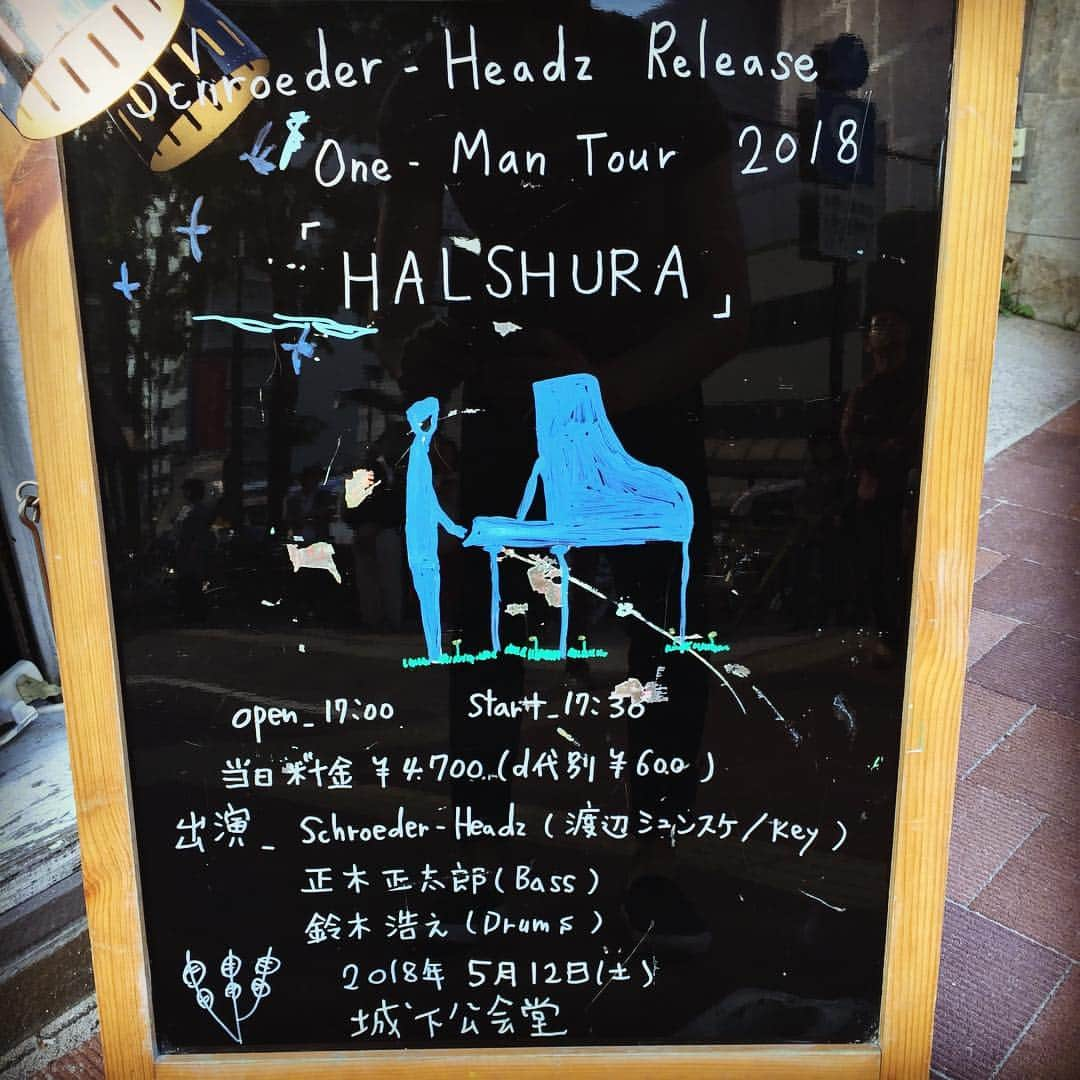 Schroeder - Headz Release
One - Man Tour 2018
「HALSHURA」
open_17:00 Start_17:30
当日料金 ¥4.700.(d代別 ¥600)
出演_ Schroeder-Headz (渡辺シュンスケ/Key)
正木正太郎(Bass)
鈴木浩之(Drums)
2018年 5月12日(土)
城下公会堂